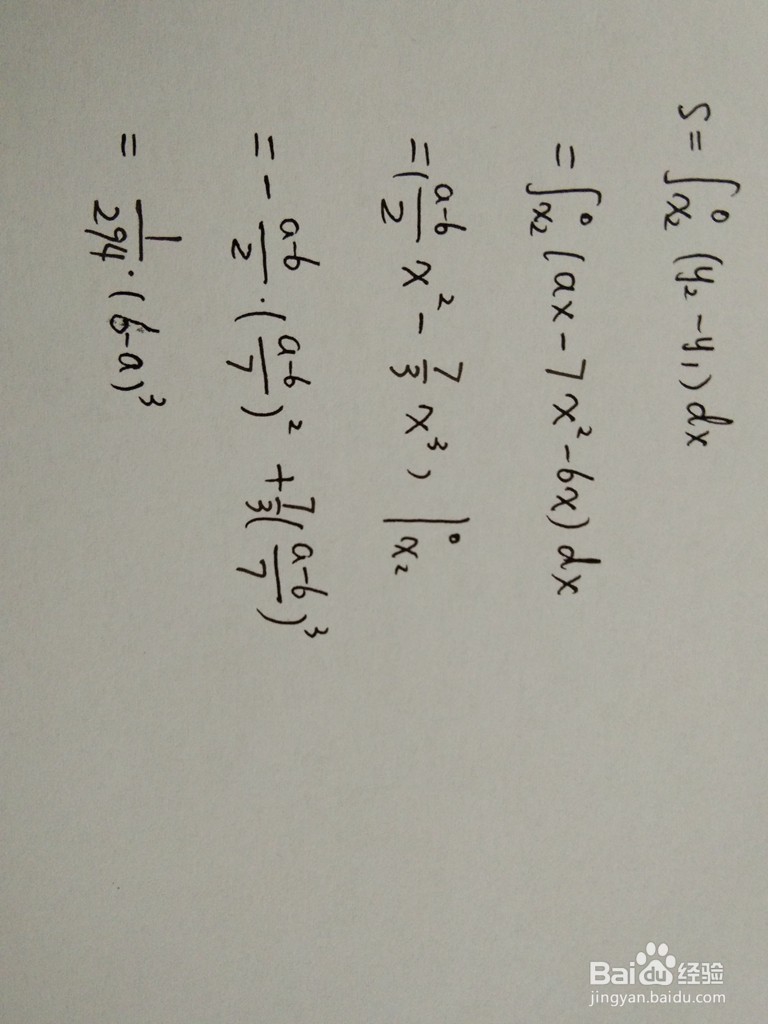 S = ∫_{x₂}^{0} (y₂ - y₁) dx
= ∫_{x₂}^{0} (ax - 7x² - bx) dx
= (\frac{a-b}{2} x² - \frac{7}{3} x³) |_{x₂}^{0}
= - \frac{a-b}{2} · (\frac{a-b}{7})² + \frac{7}{3} (\frac{a-b}{7})³
= \frac{1}{294} · (b-a)³
Baidu经验
jingyan.baidu.com